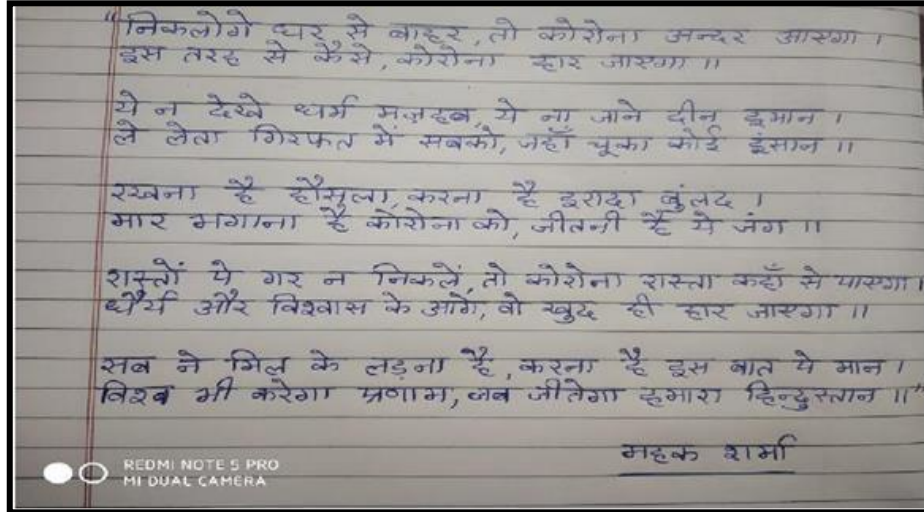 "निकलोगे घर से बाहर, तो कोरोना अन्दर आएगा ।
इस तरह से कैसे, कोरोना हार जाएगा ॥
ये न देखे धर्म मज़हब, ये ना जाने दीन इमान ।
ले लेता गिरफत में सबको, जहाँ चूका कोई इंसान ॥
रखना है हौसला, करना है इरादा बुंलद ।
मार भगाना है कोरोना को, जीतनी है ये जंग ॥
रास्तों पे गर न निकलें, तो कोरोना रास्ता कहाँ से पाएगा ।
धैर्य और विश्वास के आगे, वो खुद ही हार जाएगा ॥
सब ने मिल के लड़ना है, करना है इस बात पे मान ।
विश्व भी करेगा प्रणाम, जब जीतेगा हमारा हिन्दुस्तान ॥"
महक शर्मा
REDMI NOTE 5 PRO
MI DUAL CAMERA